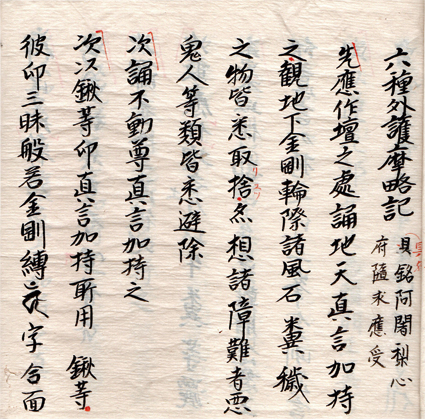 六種外護摩略記 具銘阿闍梨心
府隨求應受
先應作壇之處誦地天真言加持
之觀地下金剛輪際諸風石糞穢
之物皆悉取捨亦想諸障難者悪
鬼人等類皆悉避除
次誦不動尊真言加持之
次以鍬等印真言加持所用 鍬等
彼印三昧般若金剛縛 字合面